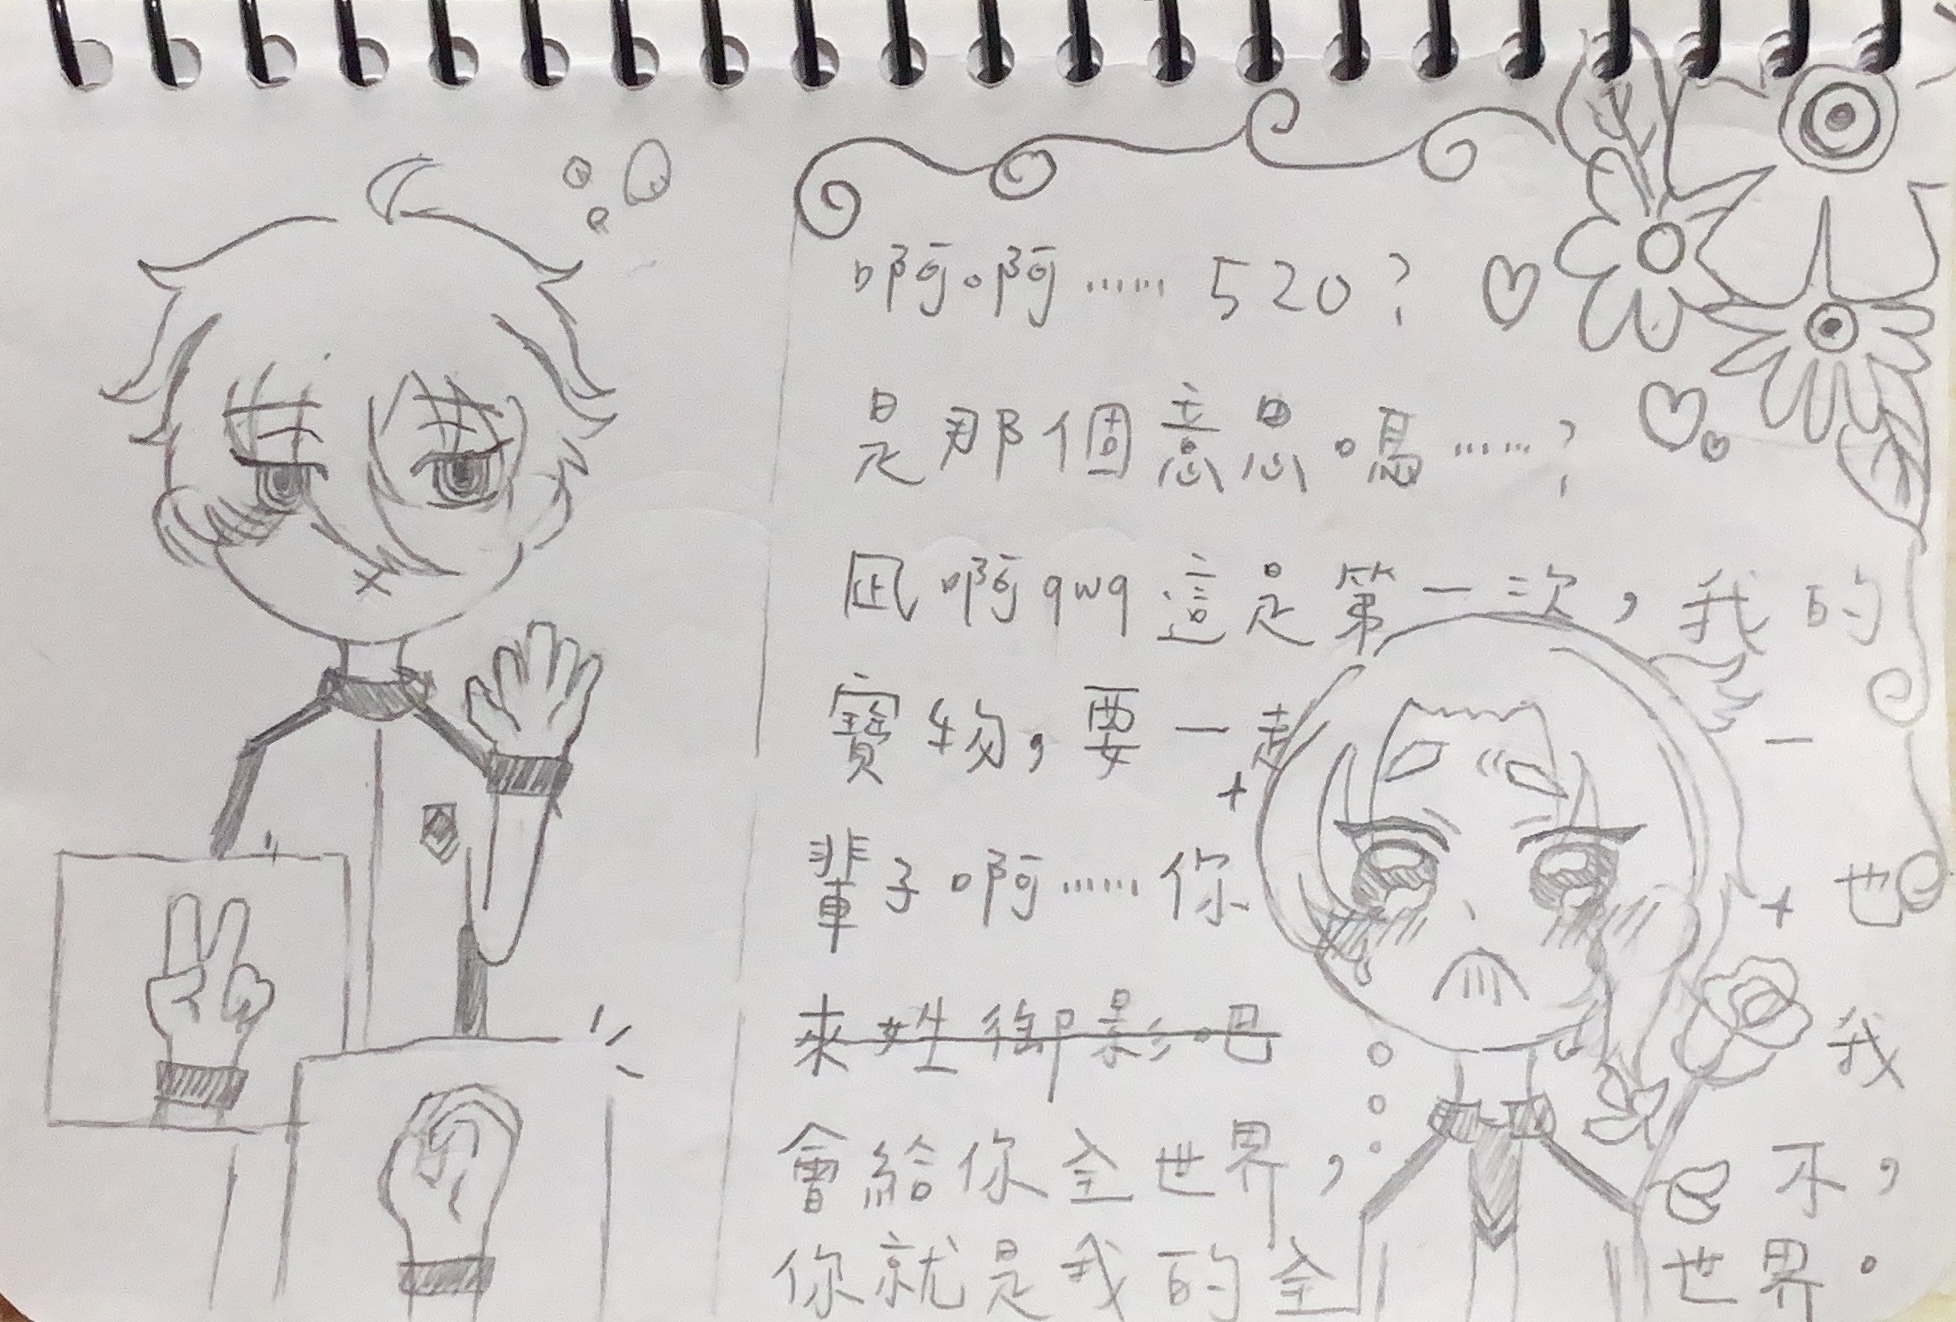 啊啊……520？
是那個意思嗎……？
凪啊qwq這是第一次，我的
寶物，要一起一
輩子啊……你也
來姓御影吧我
會給你全世界，不，
你就是我的全世界。